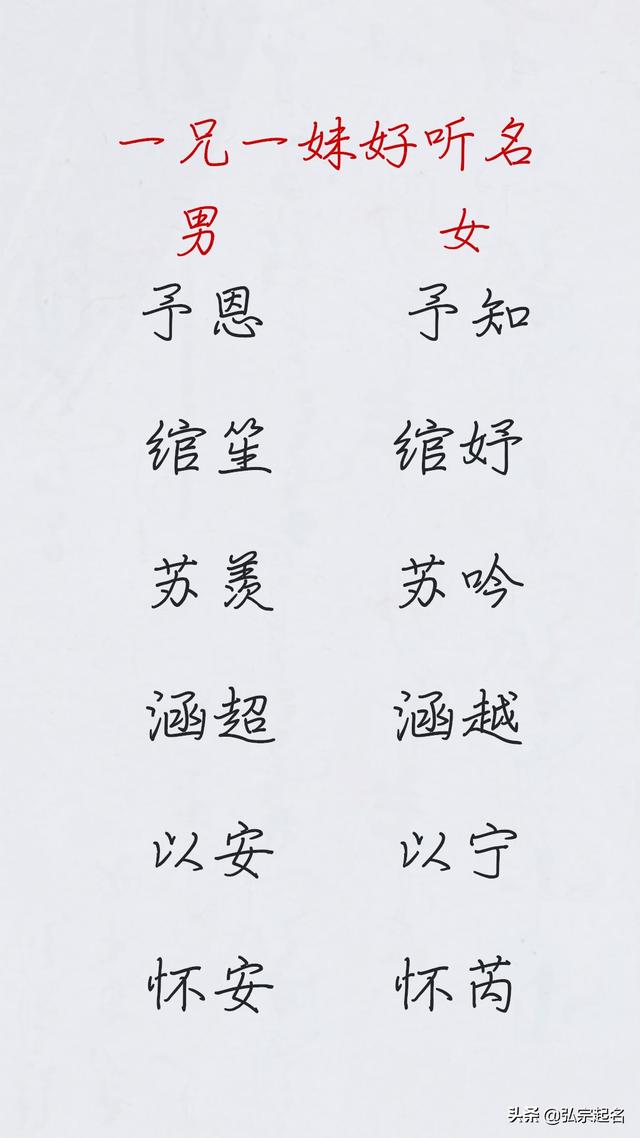 一兄一妹好听名
男 女
予恩 予知
绾笙 绾妤
苏羡 苏吟
涵超 涵越
以安 以宁
怀安 怀芮
头条 @弘宗起名